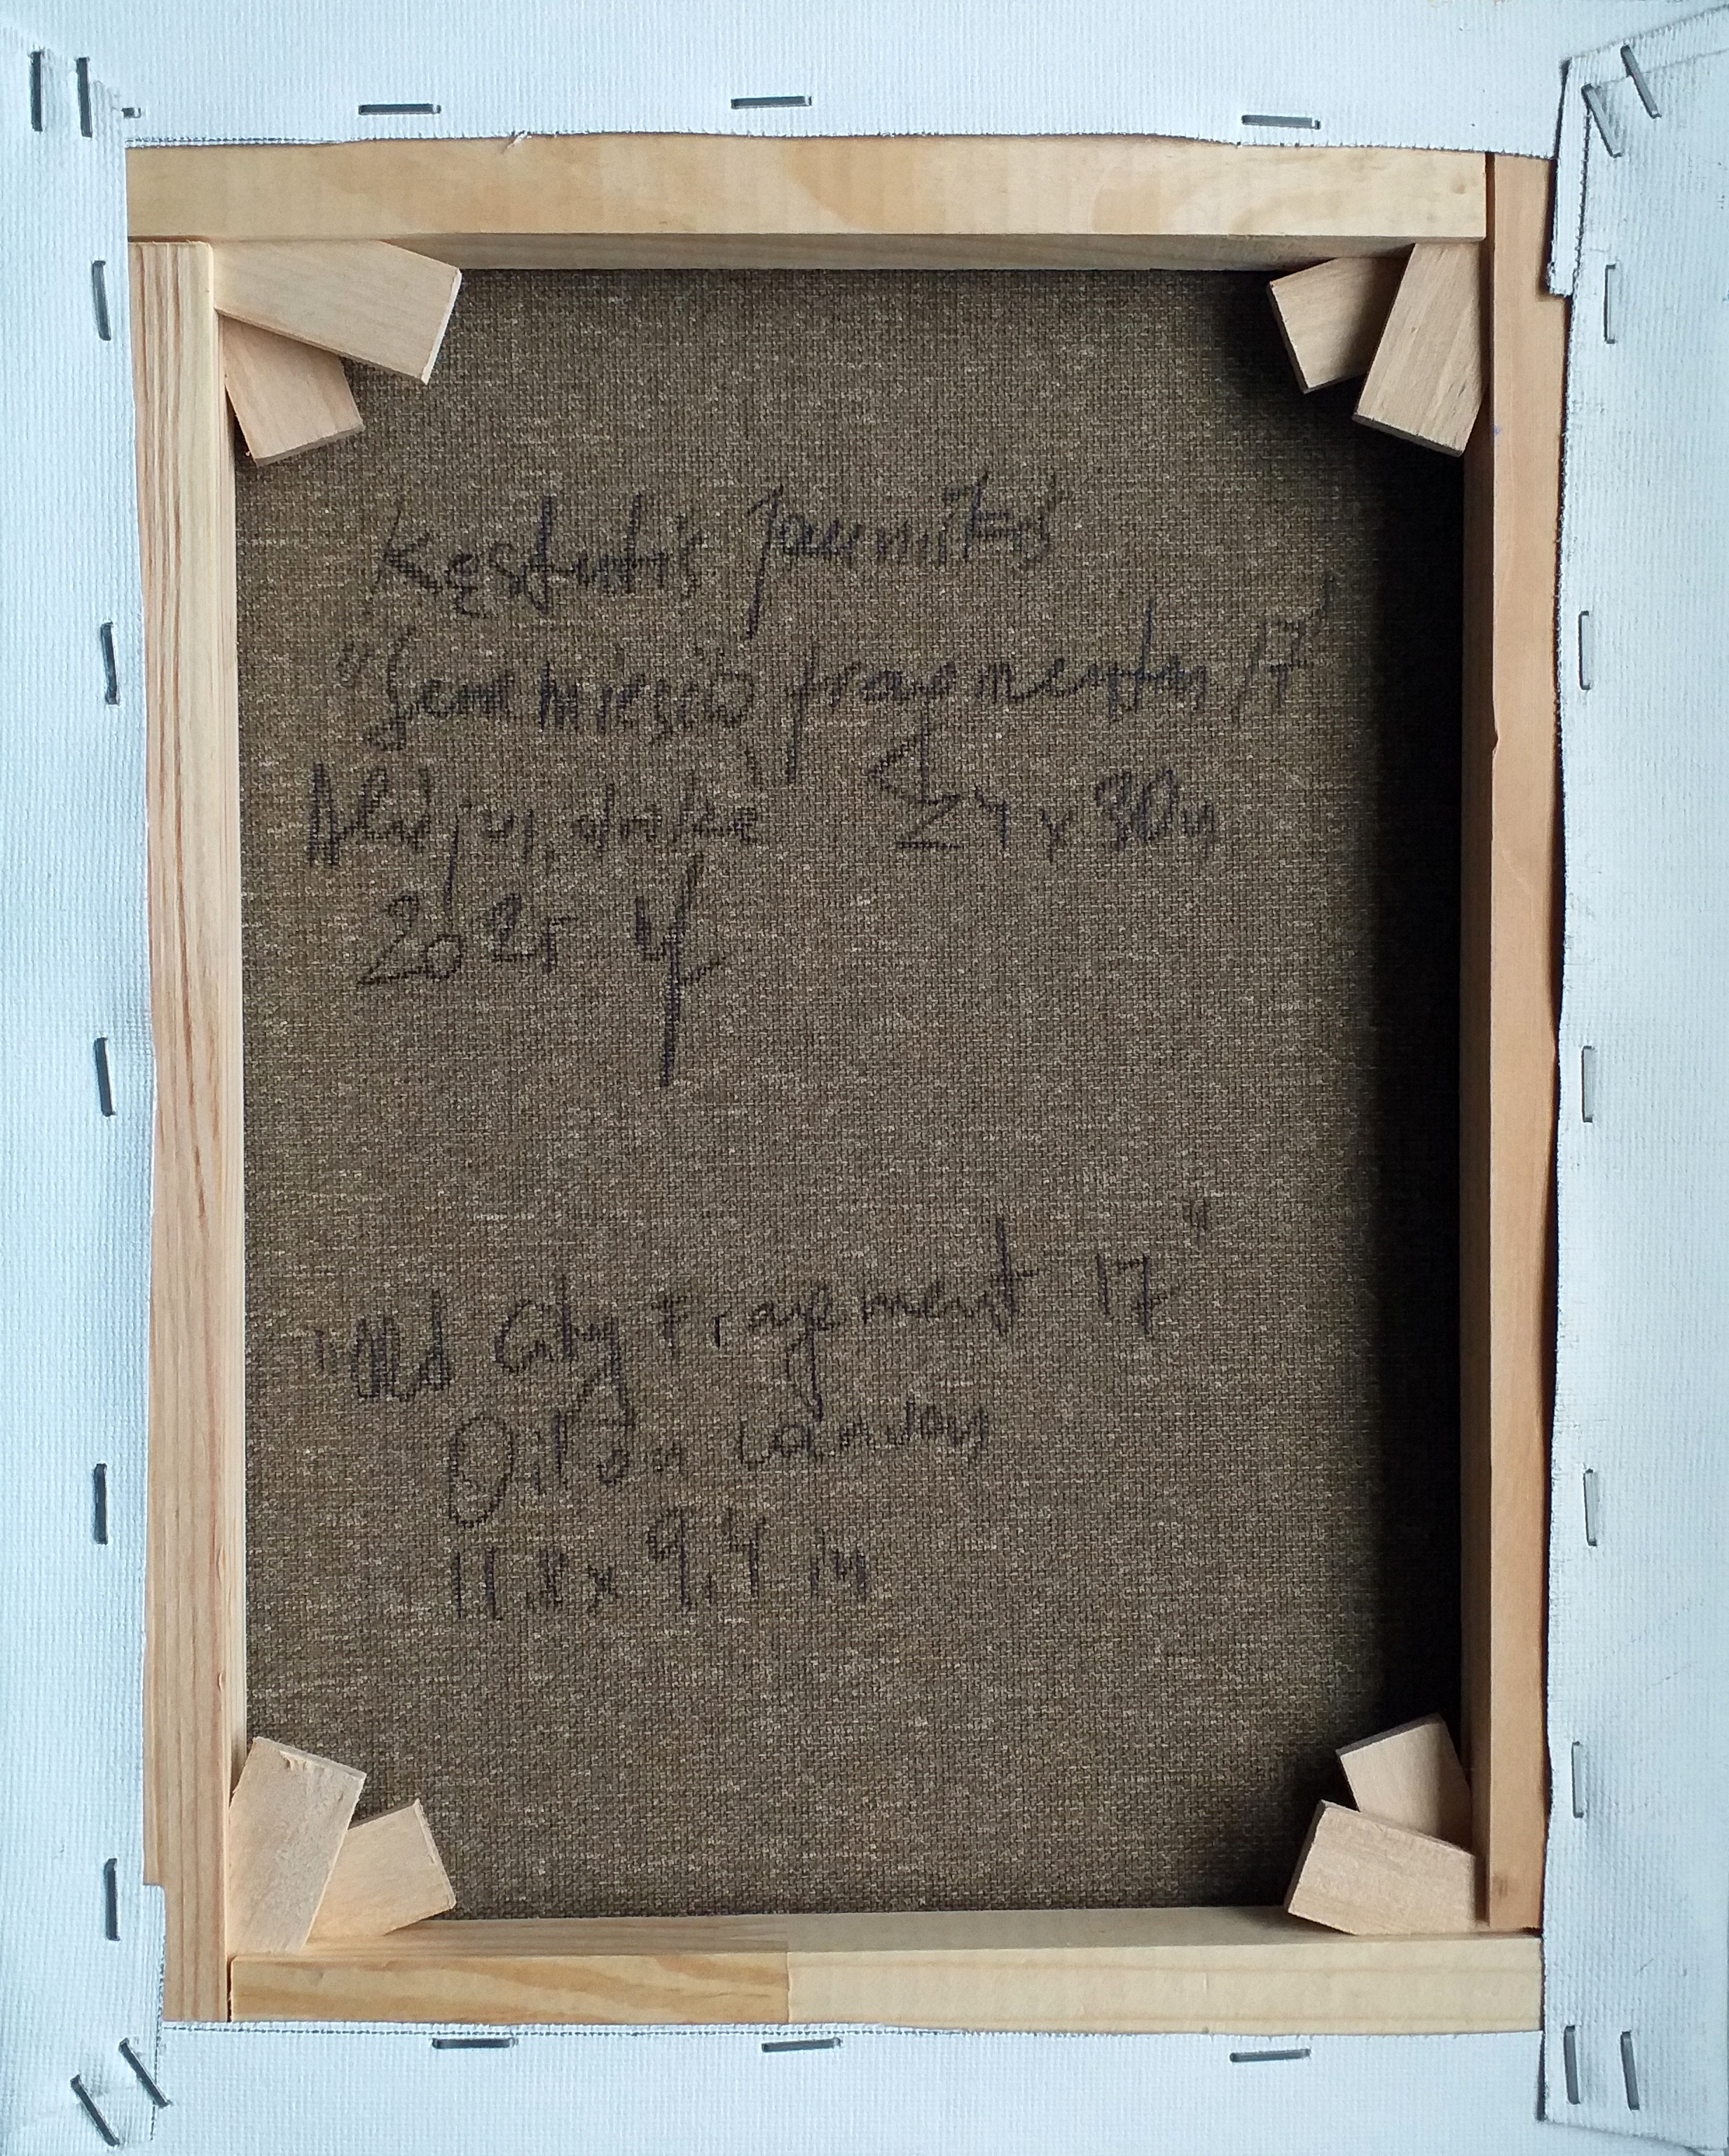 Kęstutis Jauniškis
"Senamiesčio fragmentas 17"
Aliejus, drobė 24 x 30
2025
"Old City Fragment 17"
Oil on canvas
11.8 x 9.4 in